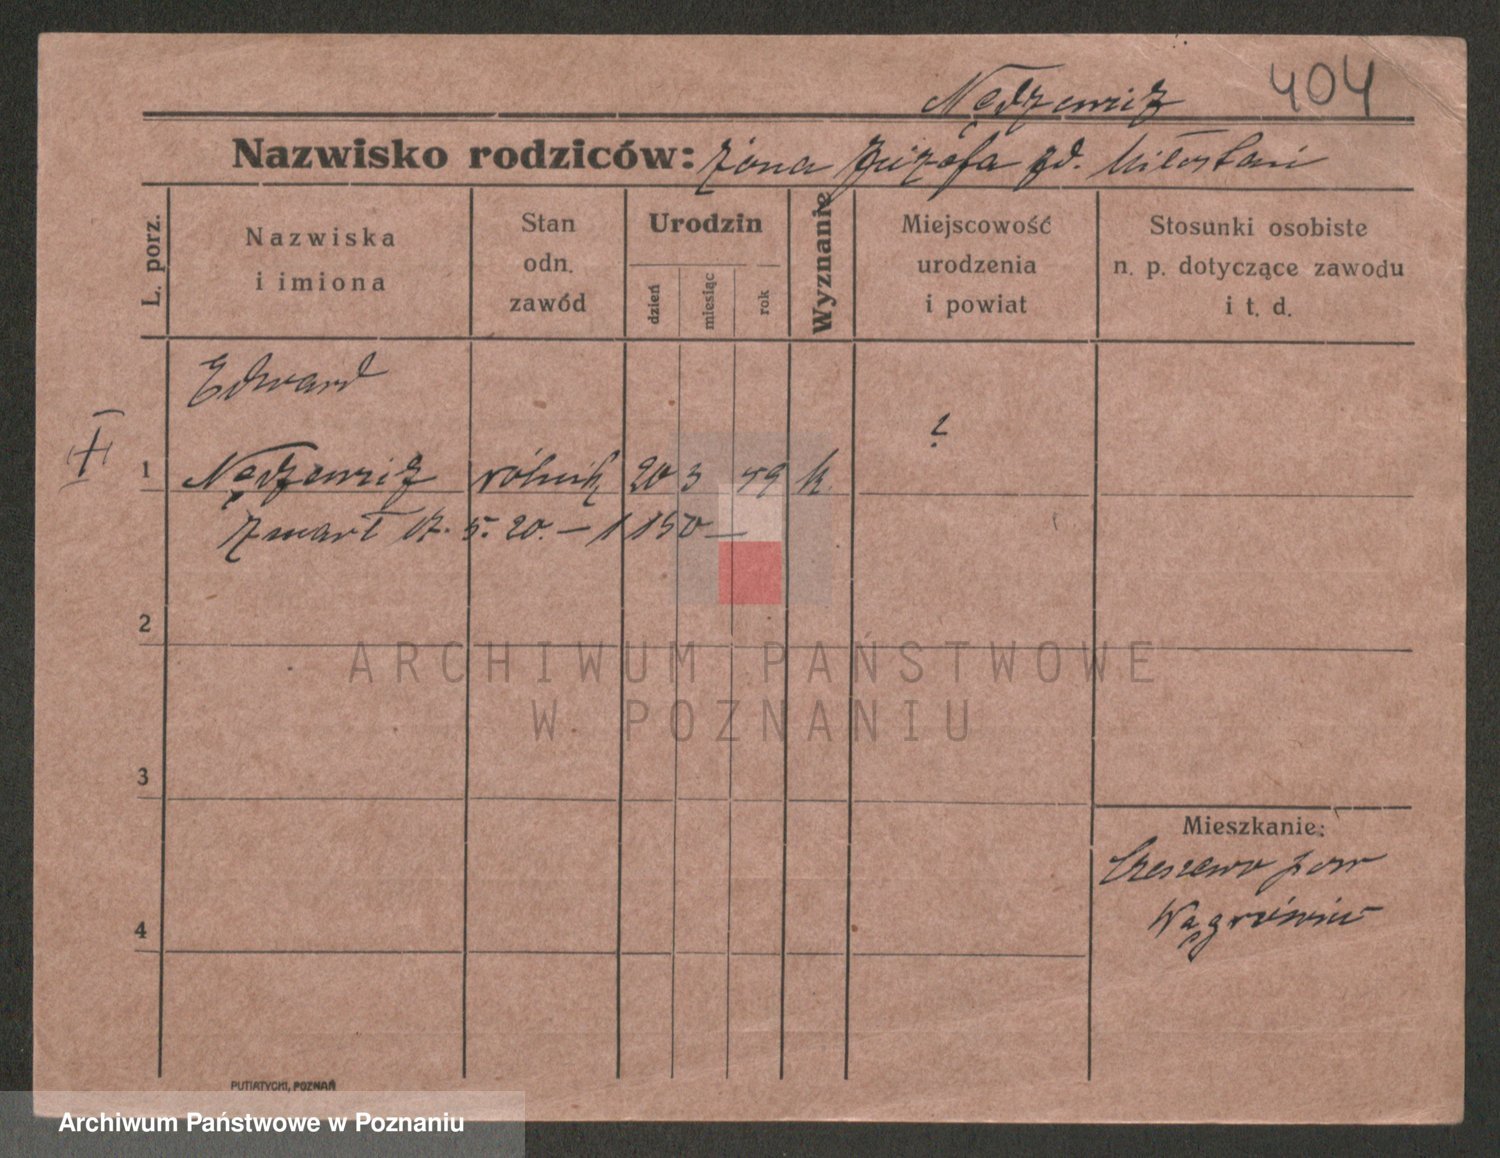 Nędzewicz 404
Nazwisko rodziców: żona Józefa zd.
L. porz.
Nazwiska
i imiona
Stan
odn.
zawód
Urodzin
dzień
miesiąc
rok
Wyznanie
Miejscowość
urodzenia
i powiat
Stosunki osobiste
n. p. dotyczące zawodu
i t. d.
Edward
?
1 Nędzewicz rólnik 20 3 k.
zmarł 5. 20. –
2
ARCHIWUM PAŃSTWOWE
W POZNANIU
3
Mieszkanie:
Czeszewo pow
4 Wągrówiec
PUTIATYCKI, POZNAŃ
Archiwum Państwowe w Poznaniu